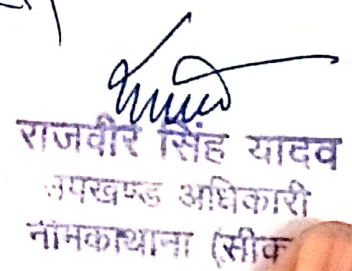 राजवीर सिंह यादव
उपखण्ड अधिकारी
नीमकाथाना (सीक